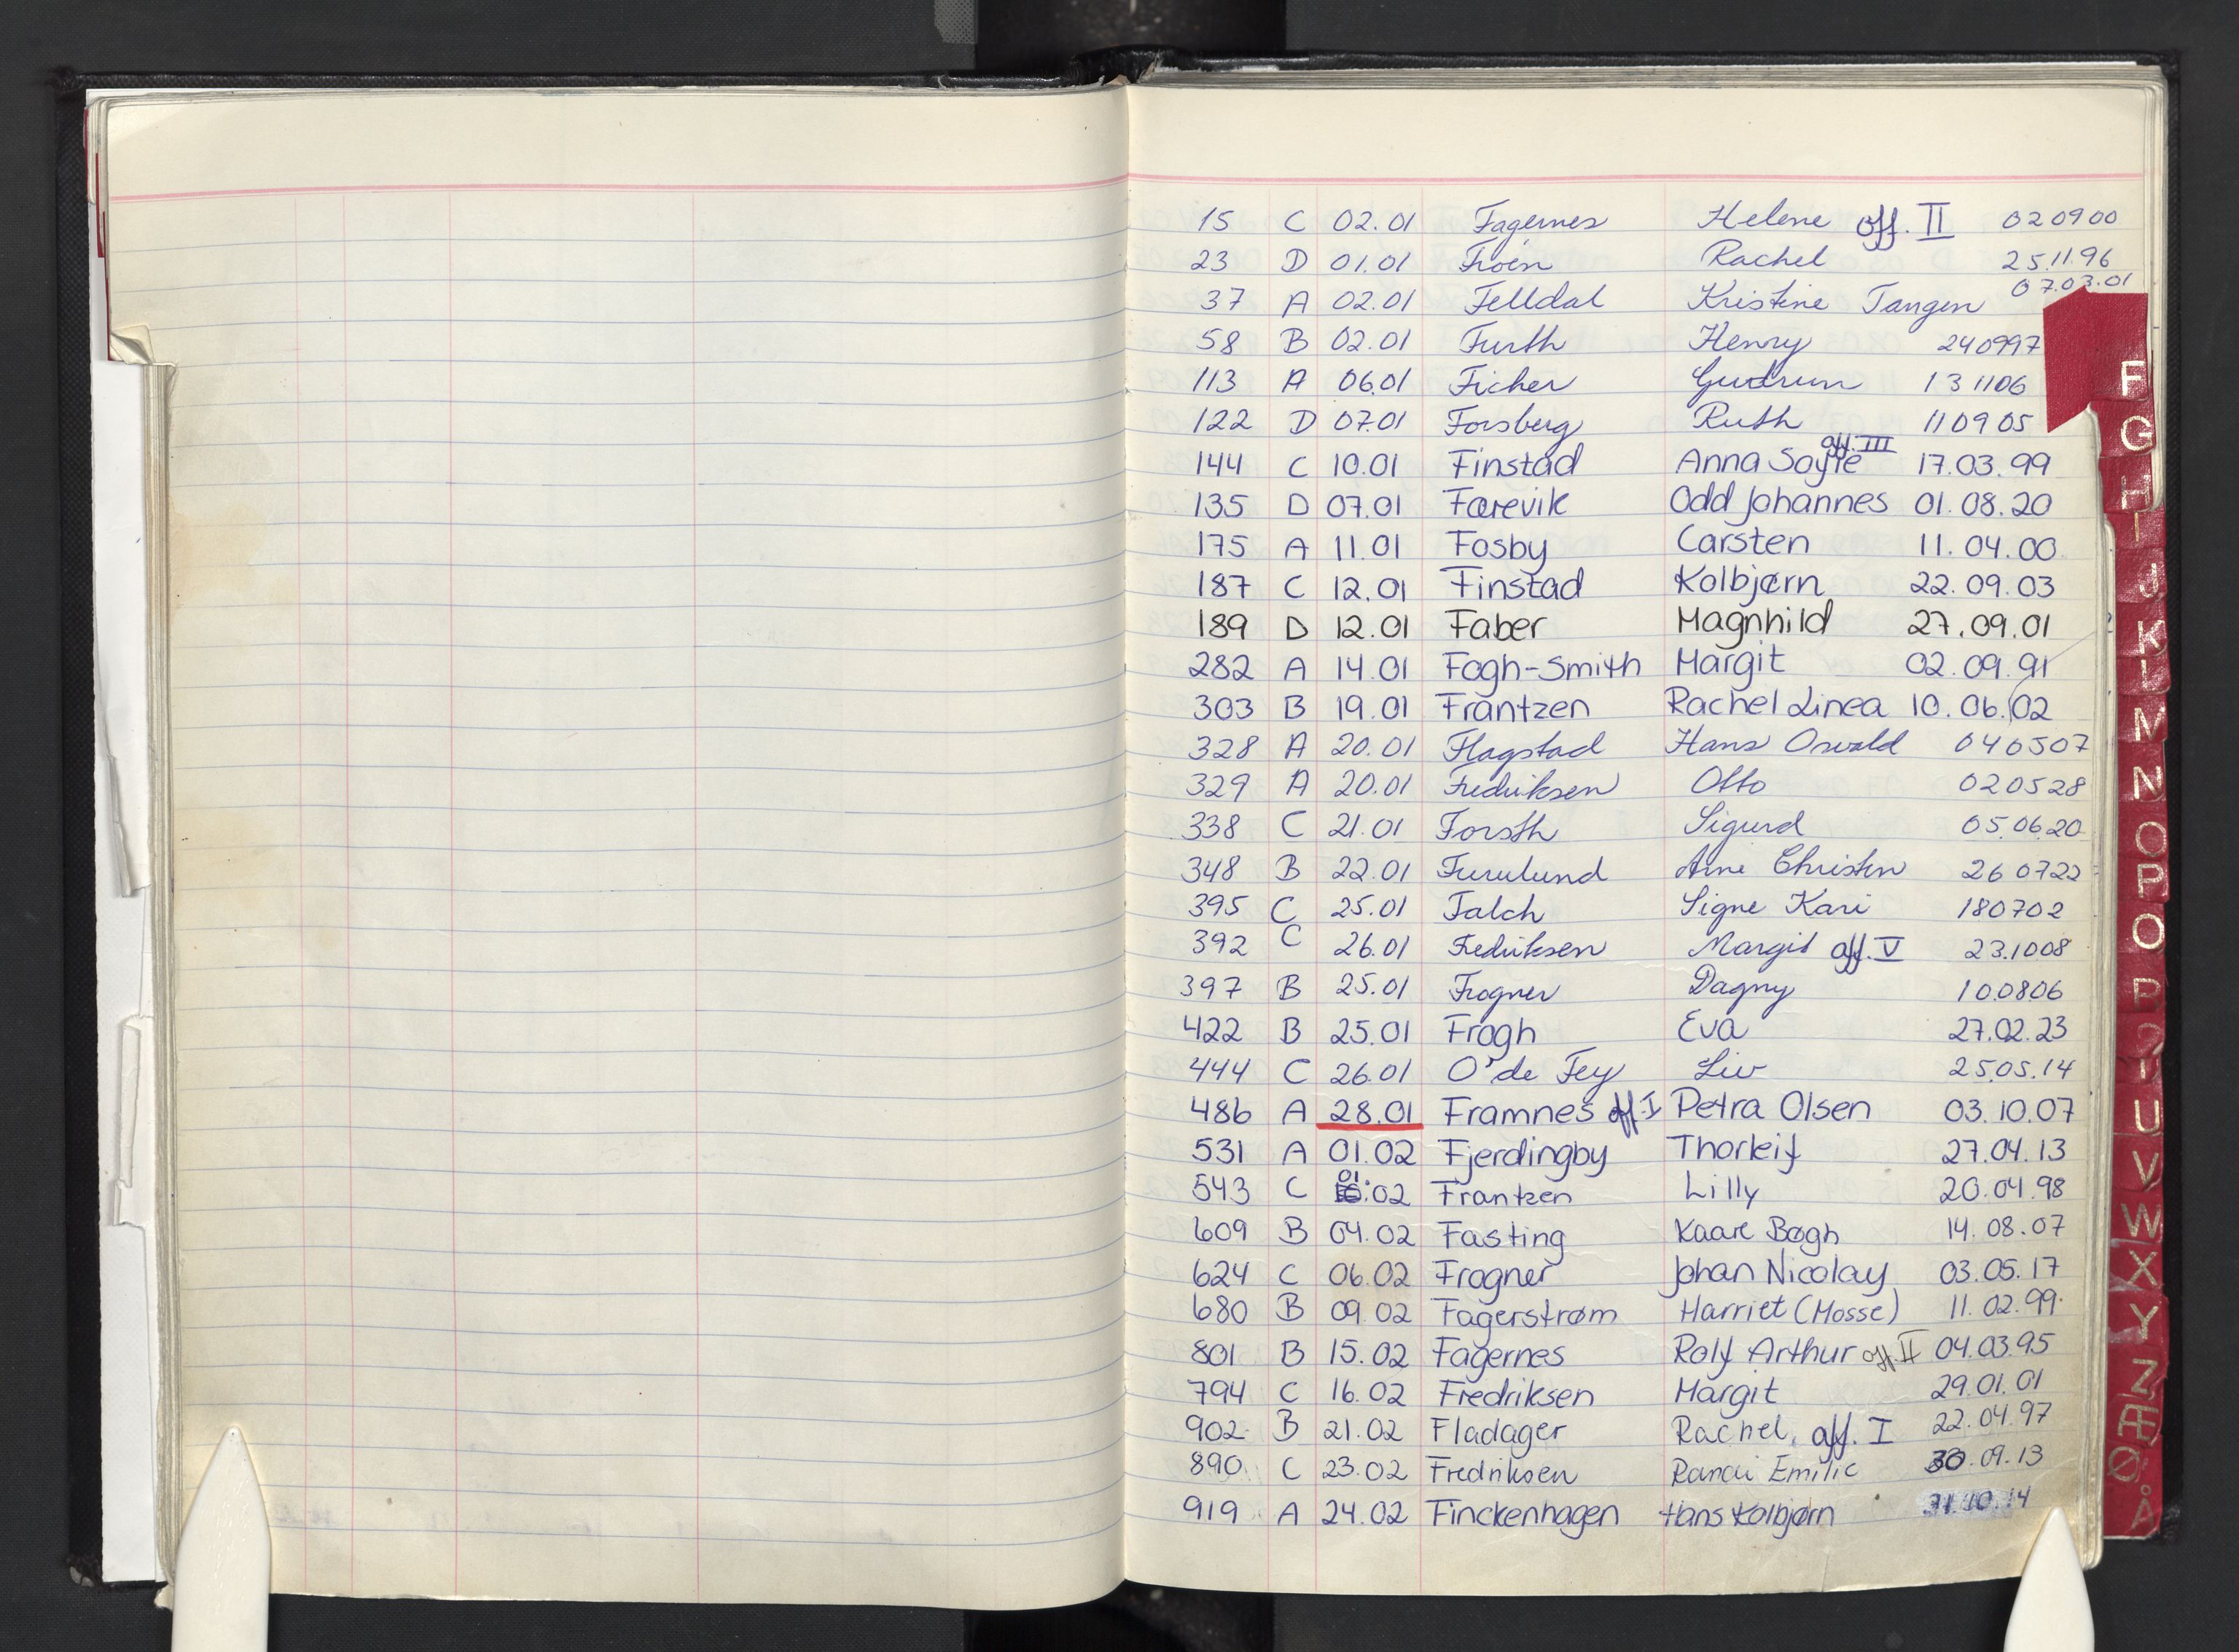 15 C 02.01 Fagernes Helene off. II 020900
23 D 01.01 Froén Rachel 25.11.96
37 A 02.01 Felldal Kristine Tangen 07.03.01
58 B 02.01 Furth Henry 240997
113 A 06.01 Ficher Gudrun 131106
122 D 07.01 Forsberg Ruth 110905
144 C 10.01 Finstad Anna Sofie off. III 17.03.99
135 D 07.01 Færevik Odd Johannes 01.08.20
175 A 11.01 Fosby Carsten 11.04.00
187 C 12.01 Finstad Kolbjørn 22.09.03
189 D 12.01 Faber Magnhild 27.09.01
282 A 14.01 Fogh-Smith Margit 02.09.91
303 B 19.01 Frantzen Rachel Linea 10.06.02
328 A 20.01 Flagstad Hans Osvald 040507
329 A 20.01 Fredriksen Otto 020528
338 C 21.01 Forsth Sigurd 05.06.20
348 B 22.01 Furulund Arne Christen 260722
395 C 25.01 Falch Signe Kari 180702
392 C 26.01 Fredriksen Margit off. V 23.1008
397 B 25.01 Frogner Dagny 10.0806
422 B 25.01 Frogh Eva 27.02.23
444 C 26.01 O'de Fey Liv 25.05.14
486 A 28.01 Framnes off. I Petra Olsen 03.10.07
531 A 01.02 Fjerdingby Thorleif 27.04.13
543 C 01.02 Frantzen Lilly 20.04.98
609 B 04.02 Fasting Kaare Bøgh 14.08.07
624 C 06.02 Frogner Johan Nicolay 03.05.17
680 B 09.02 Fagerstrøm Harriet (Mosse) 11.02.99
801 B 15.02 Fagernes Rolf Arthur off. II 04.03.95
794 C 16.02 Fredriksen Margit 29.01.01
902 B 21.02 Fladager Rachel. off. I 22.04.97
890 C 23.02 Fredriksen Randi Emilie 30.09.13
919 A 24.02 Finckenhagen Hans Kolbjørn 31.10.14
F
G
H
I
J
K
L
M
N
O
P
O
P
U
V
W
X
Y
Z
Æ
Ø
Å